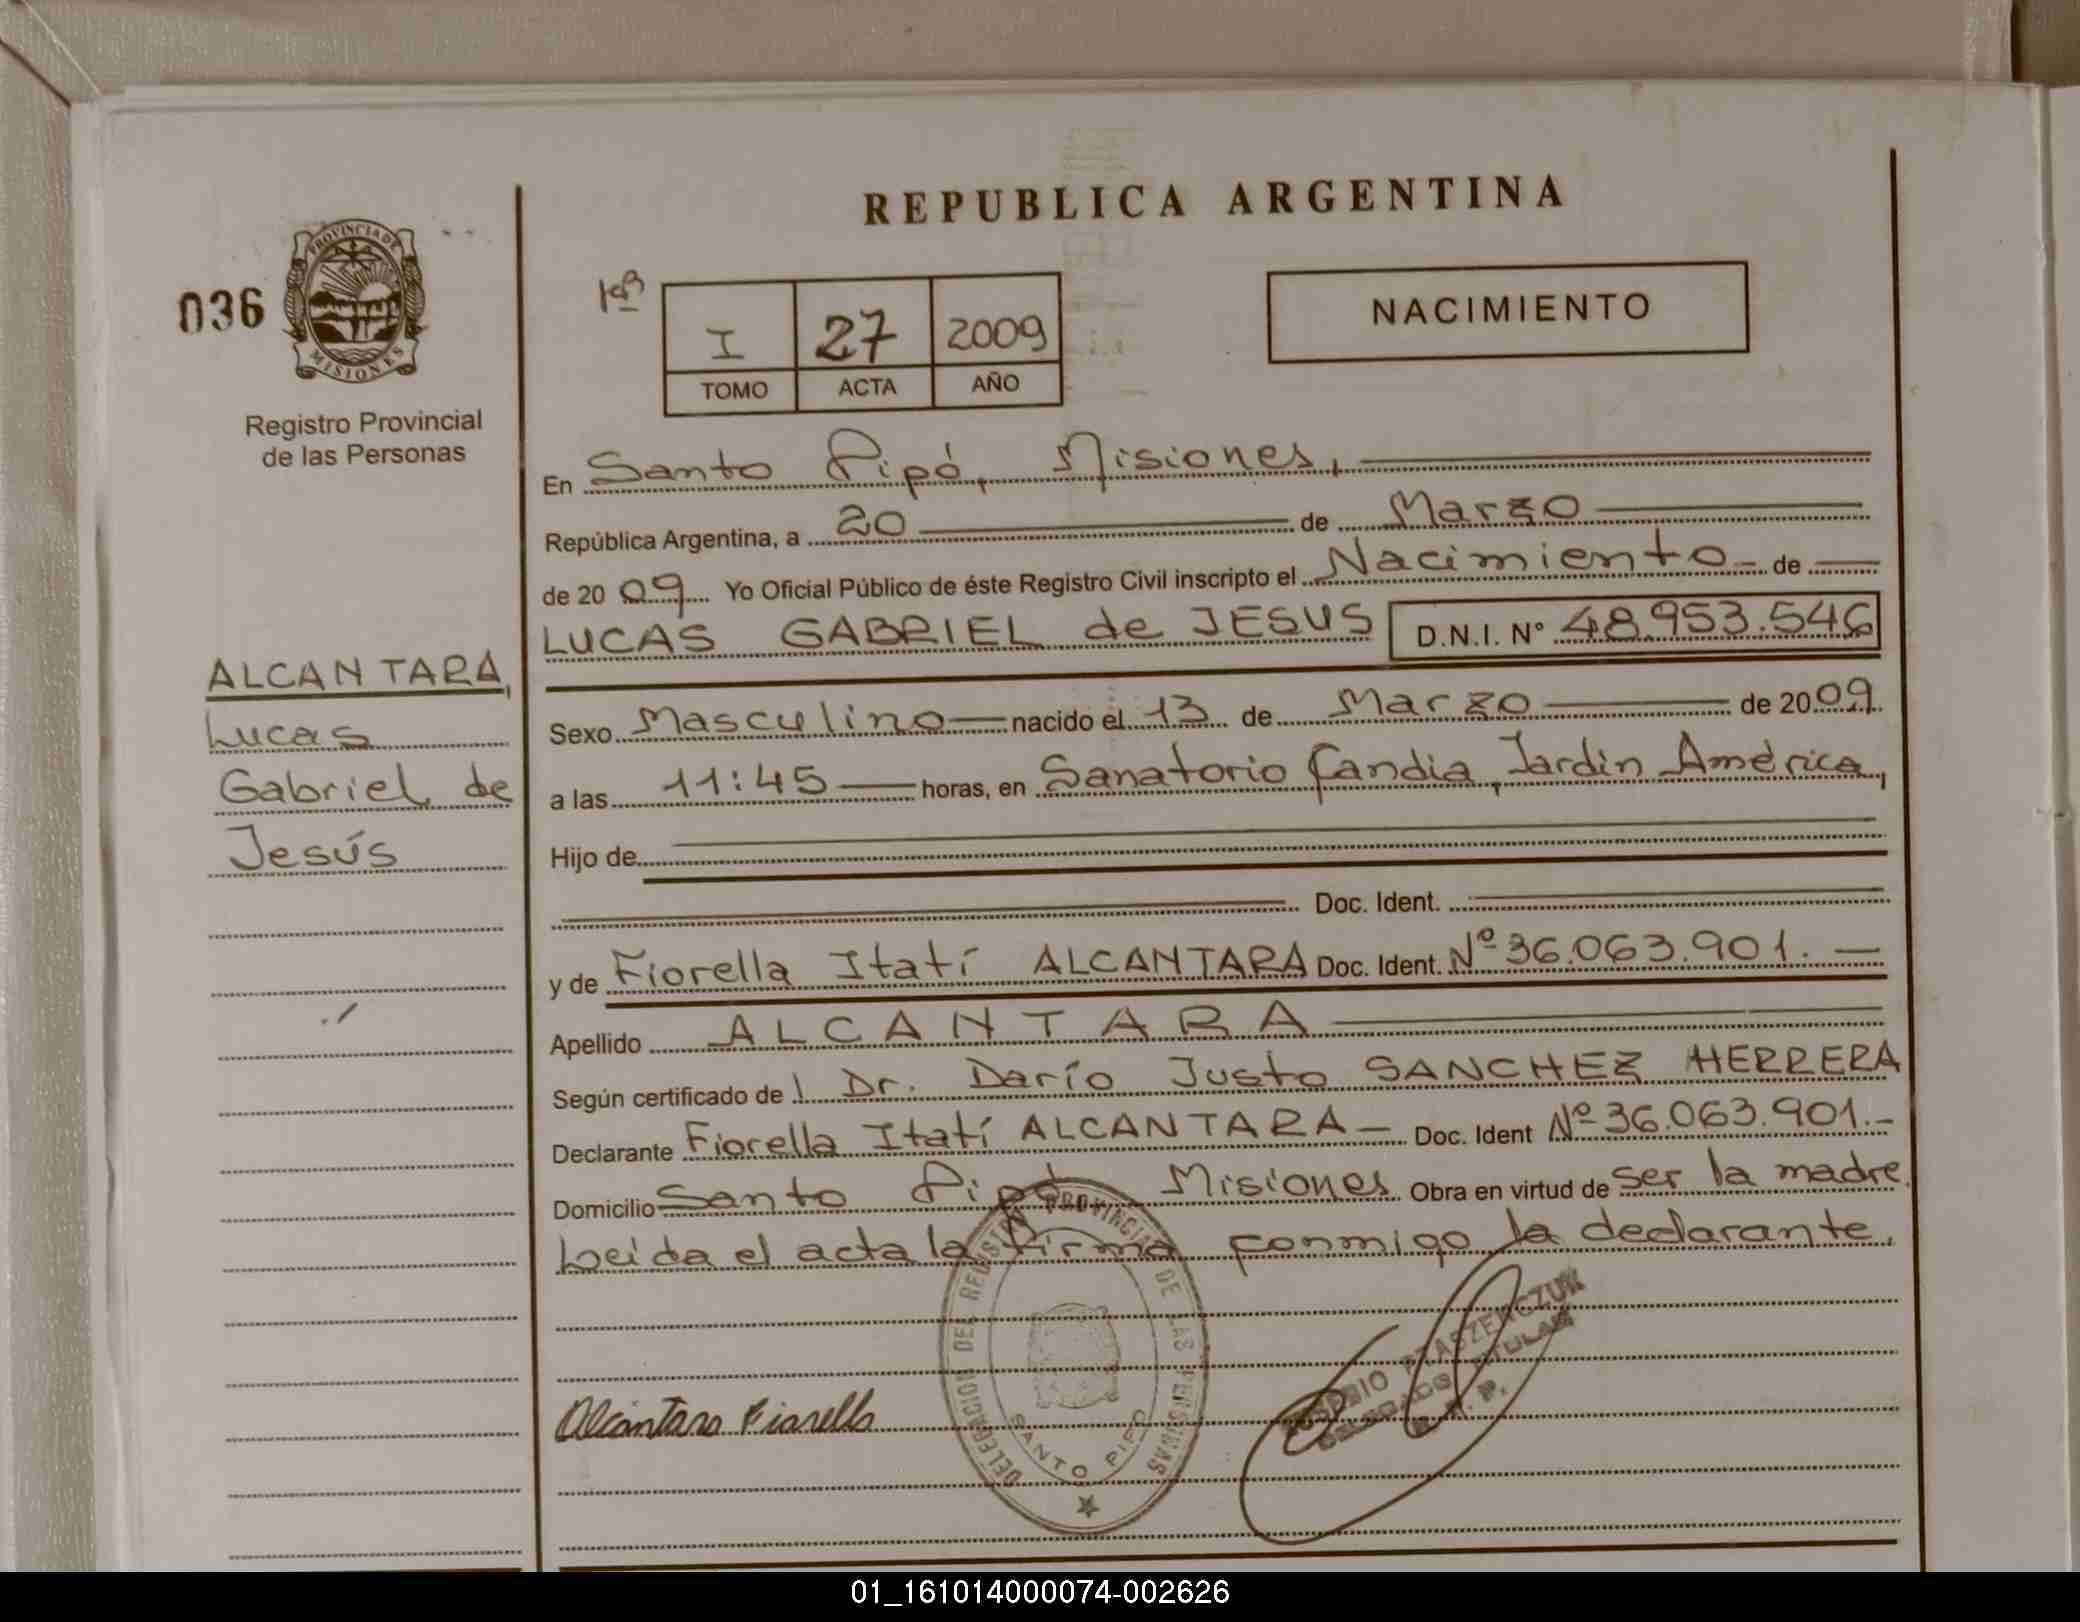 REPUBLICA ARGENTINA
036
PROVINCIA DE
MISIONES
Registro Provincial
de las Personas
1ra
I 27 2009
TOMO ACTA AÑO
NACIMIENTO
En Santo Pipó, Misiones,
República Argentina, a 20 de Marzo
de 2009 Yo Oficial Público de éste Registro Civil inscripto el Nacimiento de
LUCAS GABRIEL de JESUS D.N.I. N° 48.953.546
ALCANTARA,
Lucas
Gabriel de
Jesús
Sexo Masculino nacido el 13 de Marzo de 2009
a las 11:45 horas, en Sanatorio Candia, Jardín América,
Hijo de
Doc. Ident.
y de Fiorella Itatí ALCANTARA Doc. Ident. Nº 36.063.901.
Apellido ALCANTARA
Según certificado de l Dr. Darío Justo SANCHEZ HERRERA
Declarante Fiorella Itatí ALCANTARA Doc. Ident Nº 36.063.901.-
Domicilio Santo Pipó Misiones Obra en virtud de ser la madre.
Leída el acta la firma conmigo la declarante.
DELEGACION DEL REGISTRO PROVINCIAL DE LAS PERSONAS
SANTO PIPO
Alcantara Fiorella
TITULAR
R. P. P.
01_161014000074-002626